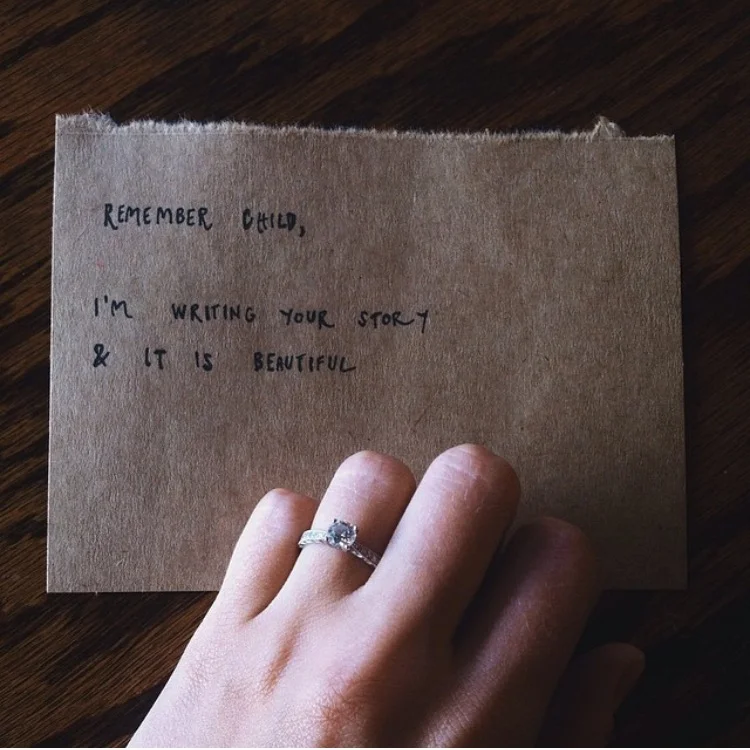 REMEMBER CHILD,
I'M WRITING YOUR STORY
& IT IS BEAUTIFUL